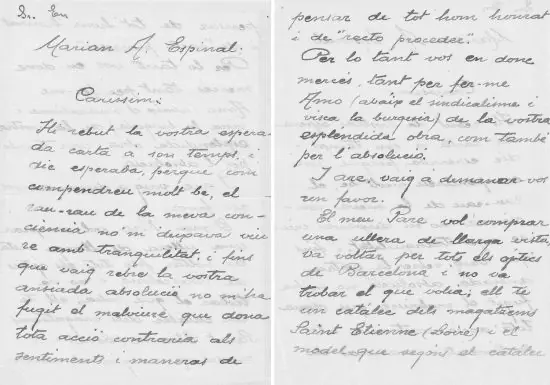 Sr. En
Marian A. Espinal.
Caríssim:
He rebut la vostra espera-
da carta a son temps, i
dic esperaba, perque com
compendreu molt be, el
rau-rau de la meva con-
ciencia no m'deixava viu-
re amb tranquilitat, i fins
que vaig rebre la vostra
ansiada absolució no m'ha
fugit el malviure que dona
tota acció contraria als
sentiments i maneras de
pensar de tot hom honrat
i de "recto proceder".
Per lo tant vos en donc
mercés, tant per fer-me
Amo (abaix el sindicalisme i
visca la burgesia) de la vostra
esplendida obra, com també
per l'absolució.
I are, vaig a demanar-vos
un favor.
El meu Pare vol comprar
una ullera de llarga vista,
va voltar per tots els optics
de Barcelona i no va
trobar el que volia; ell te
un catalec dels magatzems
Saint Etienne (Loire) i el
model que segons el catalec